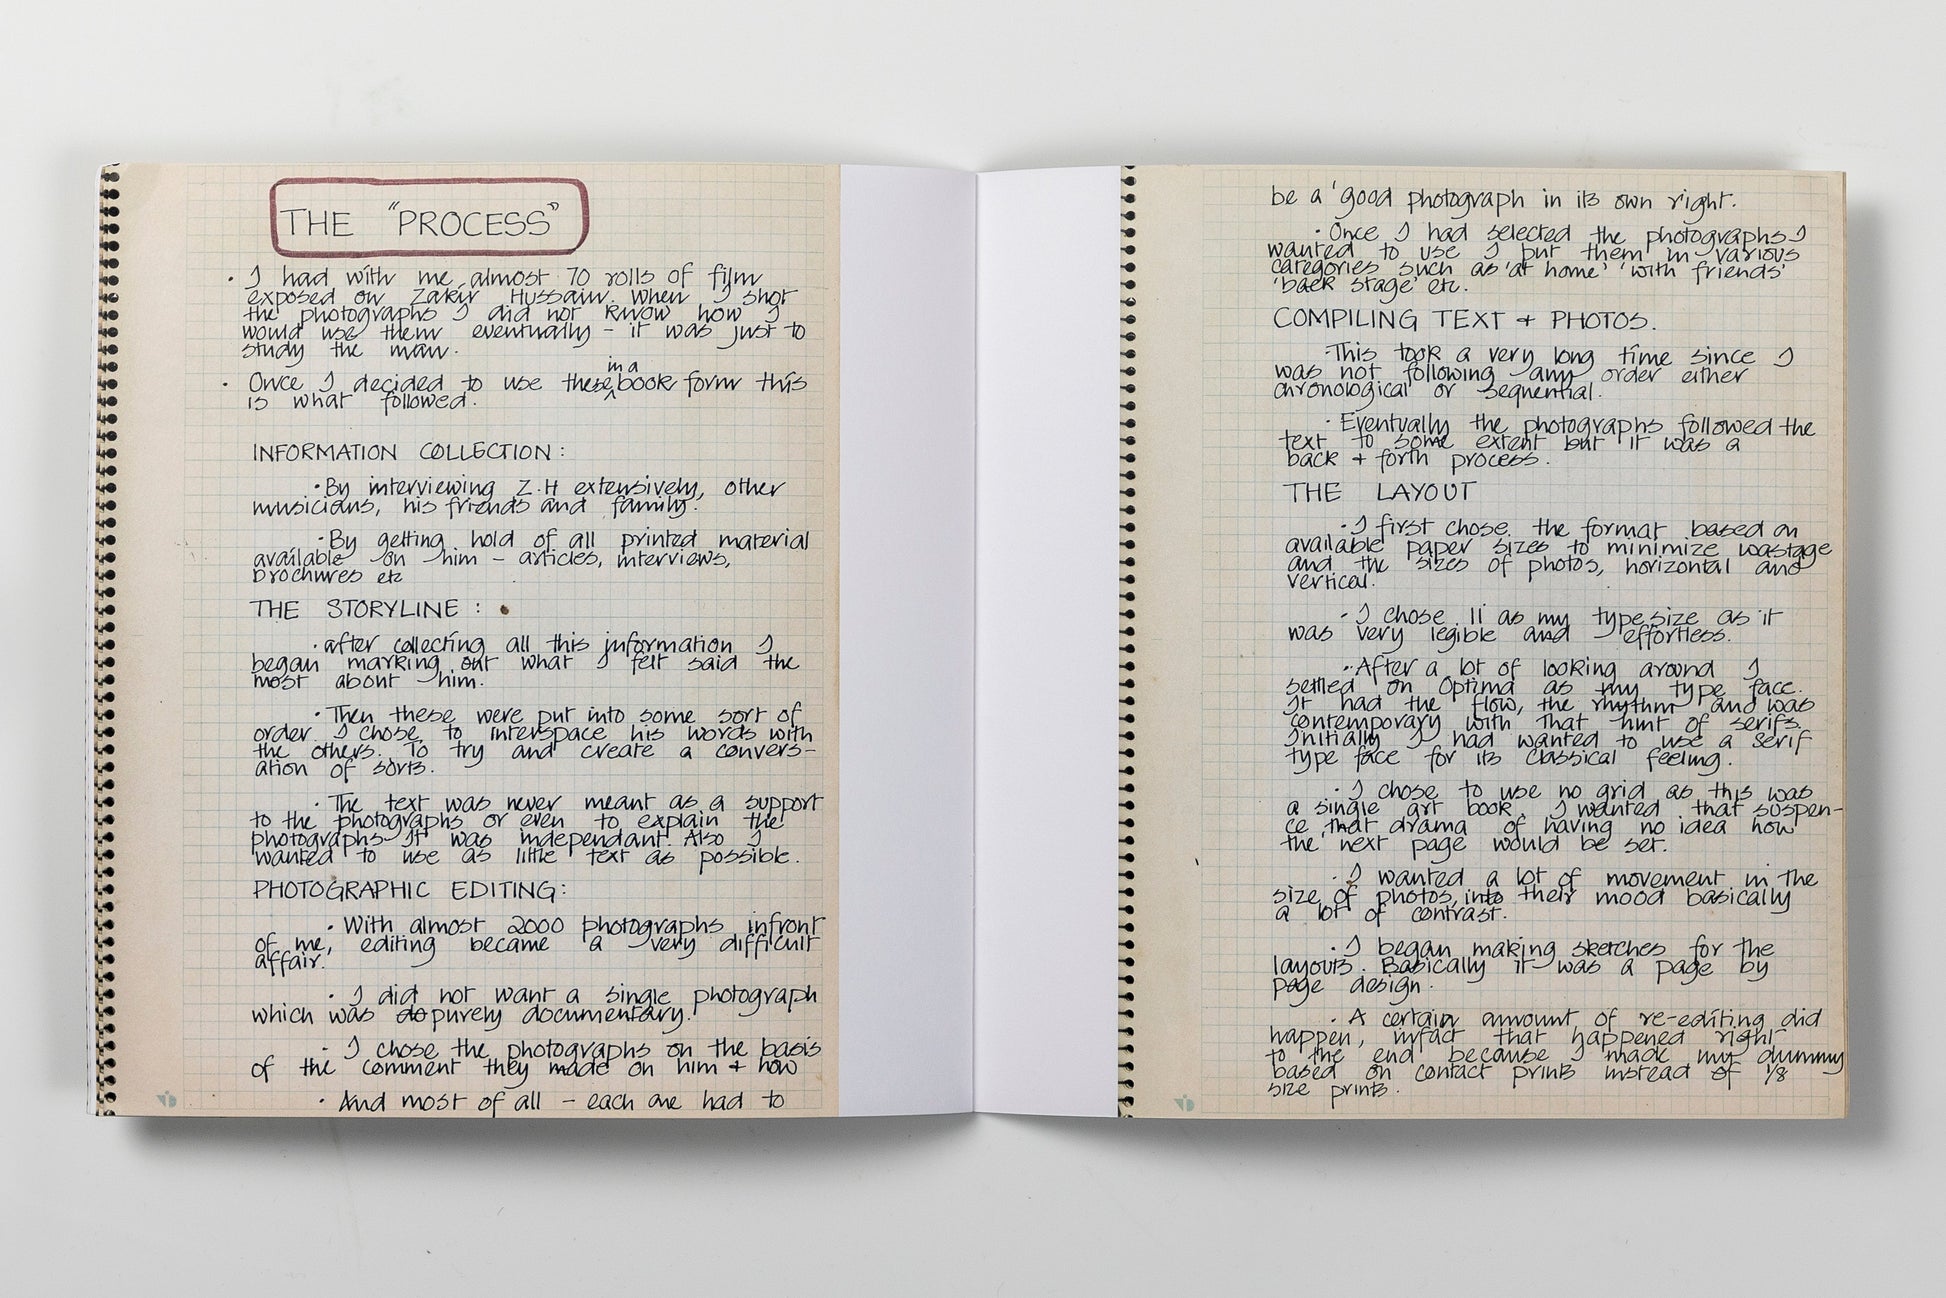 THE "PROCESS"
· I had with me almost 70 rolls of film
exposed on Zakir Hussain. When I shot
the photographs I did not know how I
would use them eventually – it was just to
study the man.
in a
· Once I decided to use these ^ book form this
is what followed.
INFORMATION COLLECTION:
· By interviewing Z.H extensively, other
musicians, his friends and family.
· By getting hold of all printed material
available on him – articles, interviews,
brochures etc
THE STORYLINE:
· after collecting all this information I
began marking out what I felt said the
most about him.
· Then these were put into some sort of
order. I chose to interspace his words with
the others. To try and create a convers-
ation of sorts.
· The text was never meant as a support
to the photographs or even to explain the
photographs. It was independant. Also I
wanted to use as little text as possible.
PHOTOGRAPHIC EDITING:
· With almost 2000 photographs infront
of me, editing became a very difficult
affair.
· I did not want a single photograph
which was do purely documentary.
· I chose the photographs on the basis
of the comment they made on him + how
· And most of all – each one had to
be a 'good photograph in its own right.
· Once I had selected the photographs I
wanted to use I put them in various
categories such as 'at home' 'with friends'
'back stage' etc.
COMPILING TEXT + PHOTOS.
· This took a very long time since I
was not following any order either
chronological or sequential.
· Eventually the photographs followed the
text to some extent but it was a
back + forth process.
THE LAYOUT
· I first chose the format based on
available paper sizes to minimize wastage
and the sizes of photos, horizontal and
vertical.
· I chose 11 as my type size as it
was very legible and effortless.
· After a lot of looking around I
settled on Optima as my type face.
It had the flow, the rhythm and was
contemporary with that hint of serifs.
Initially I had wanted to use a serif
type face for its classical feeling.
· I chose to use no grid as this was
a single art book. I wanted that suspen-
ce that drama of having no idea how
the next page would be set.
· I wanted a lot of movement in the
size of photos, into their mood basically
a lot of contrast.
· I began making sketches for the
layouts. Basically it was a page by
page design.
· A certain amount of re-editing did
happen, infact that happened right
to the end because I made my dummy
based on contact prints instead of 1/8
size prints.